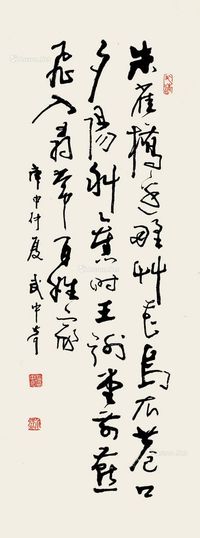 朱雀橋邊野艸花烏衣巷口
夕陽斜舊時王謝堂前燕
飛入尋常百姓家
庚申仲夏 武中奇